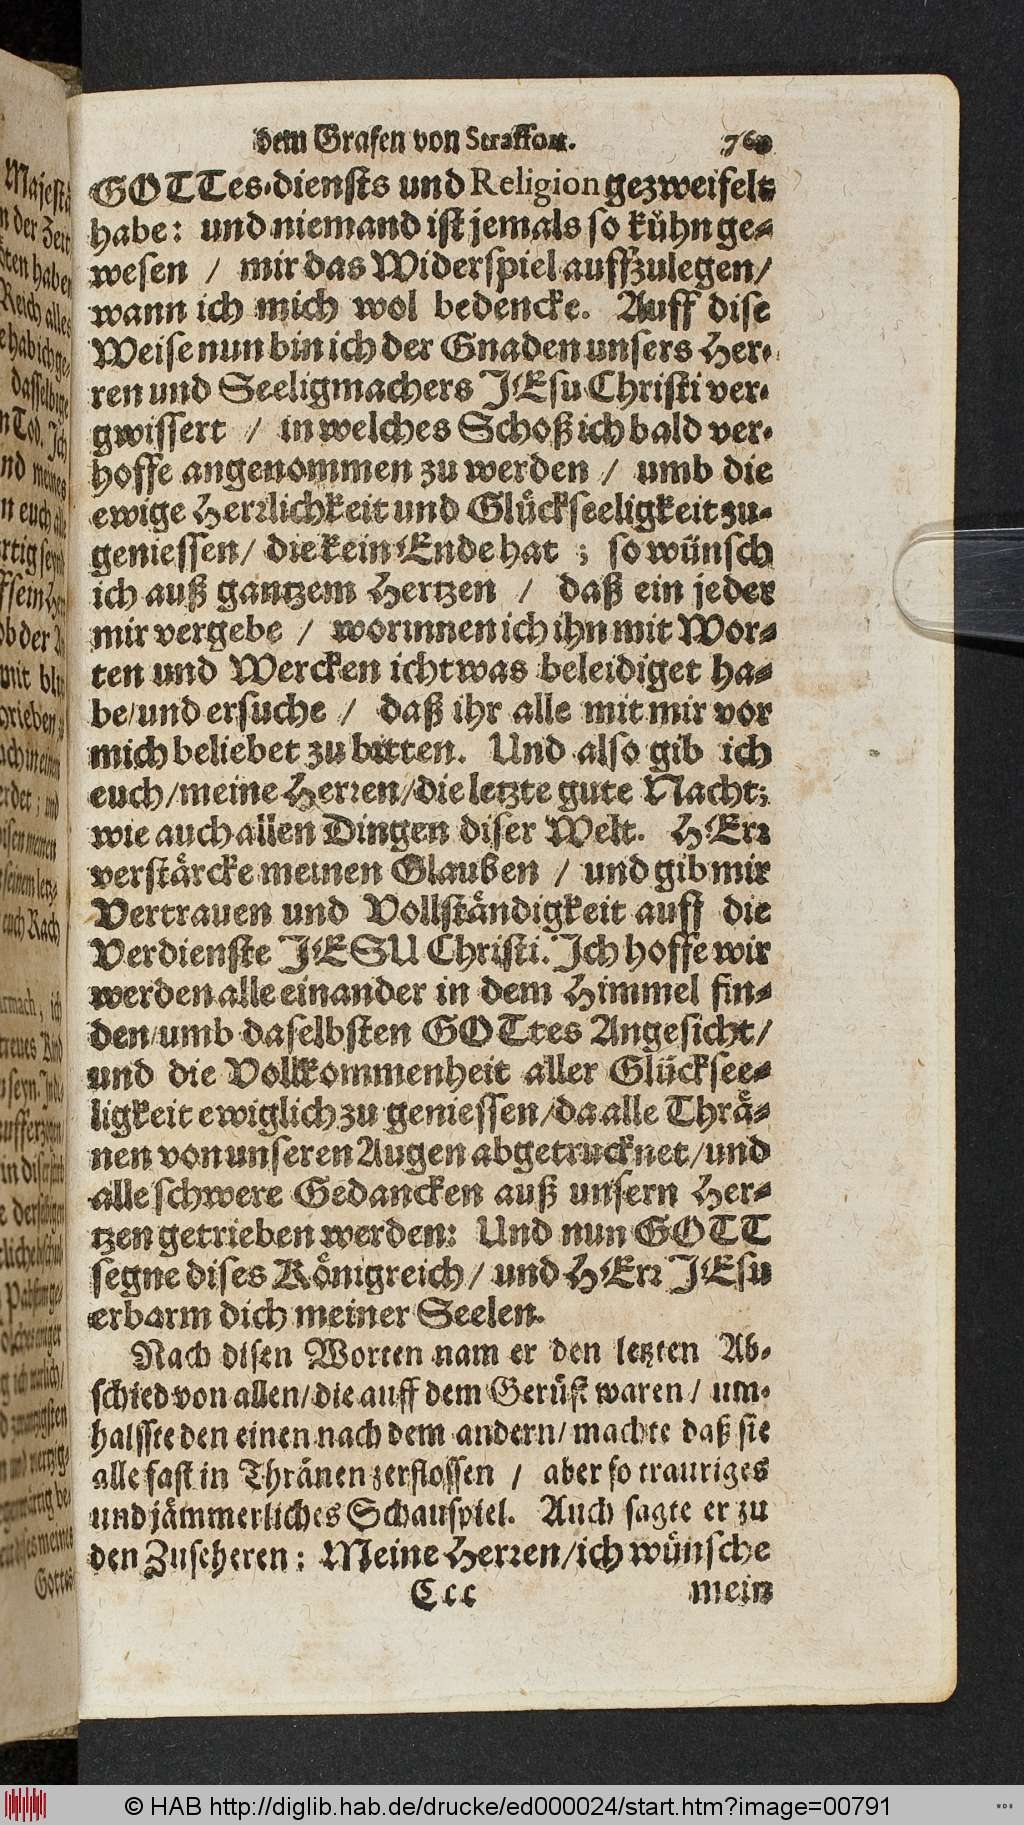 dem Grafen von Straffort. 769
GOTTes-diensts und Religion gezweifelt
habe: und niemand ist jemals so kühn ge-
wesen / mir das Widerspiel auffzulegen/
wann ich mich wol bedencke. Auff dise
Weise nun bin ich der Gnaden unsers Her-
ren und Seeligmachers JEsu Christi ver-
gwissert / in welches Schoß ich bald ver-
hoffe angenommen zu werden / umb die
ewige Herrlichkeit und Glückseeligkeit zu-
geniessen/ die kein Ende hat ; so wünsch
ich auß gantzem Hertzen / daß ein jeder
mir vergebe / worinnen ich ihn mit Wor-
ten und Wercken ichtwas beleidiget ha-
be/und ersuche / daß ihr alle mit mir vor
mich beliebet zu bitten. Und also gib ich
euch/meine Herren/die letzte gute Nacht;
wie auch allen Dingen diser Welt. HErr
verstärcke meinen Glauben / und gib mir
Vertrauen und Vollständigkeit auff die
Verdienste JESU Christi. Ich hoffe wir
werden alle einander in dem Himmel fin-
den/umb daselbsten GOTtes Angesicht/
und die Vollkommenheit aller Glücksee-
ligkeit ewiglich zu geniessen/da alle Thrä-
nen von unseren Augen abgetrucknet/und
alle schwere Gedancken auß unsern Her-
tzen getrieben werden: Und nun GOTT
segne dises Königreich/ und HErr JEsu
erbarm dich meiner Seelen.
Nach disen Worten nam er den letzten Ab-
schied von allen/die auff dem Gerüst waren/ um-
halsste den einen nach dem andern/ machte daß sie
alle fast in Thränen zerflossen / aber so trauriges
und jämmerliches Schauspiel. Auch sagte er zu
den Zuseheren: Meine Herren/ich wünsche
Ccc mein
© HAB http://diglib.hab.de/drucke/ed000024/start.htm?image=00791